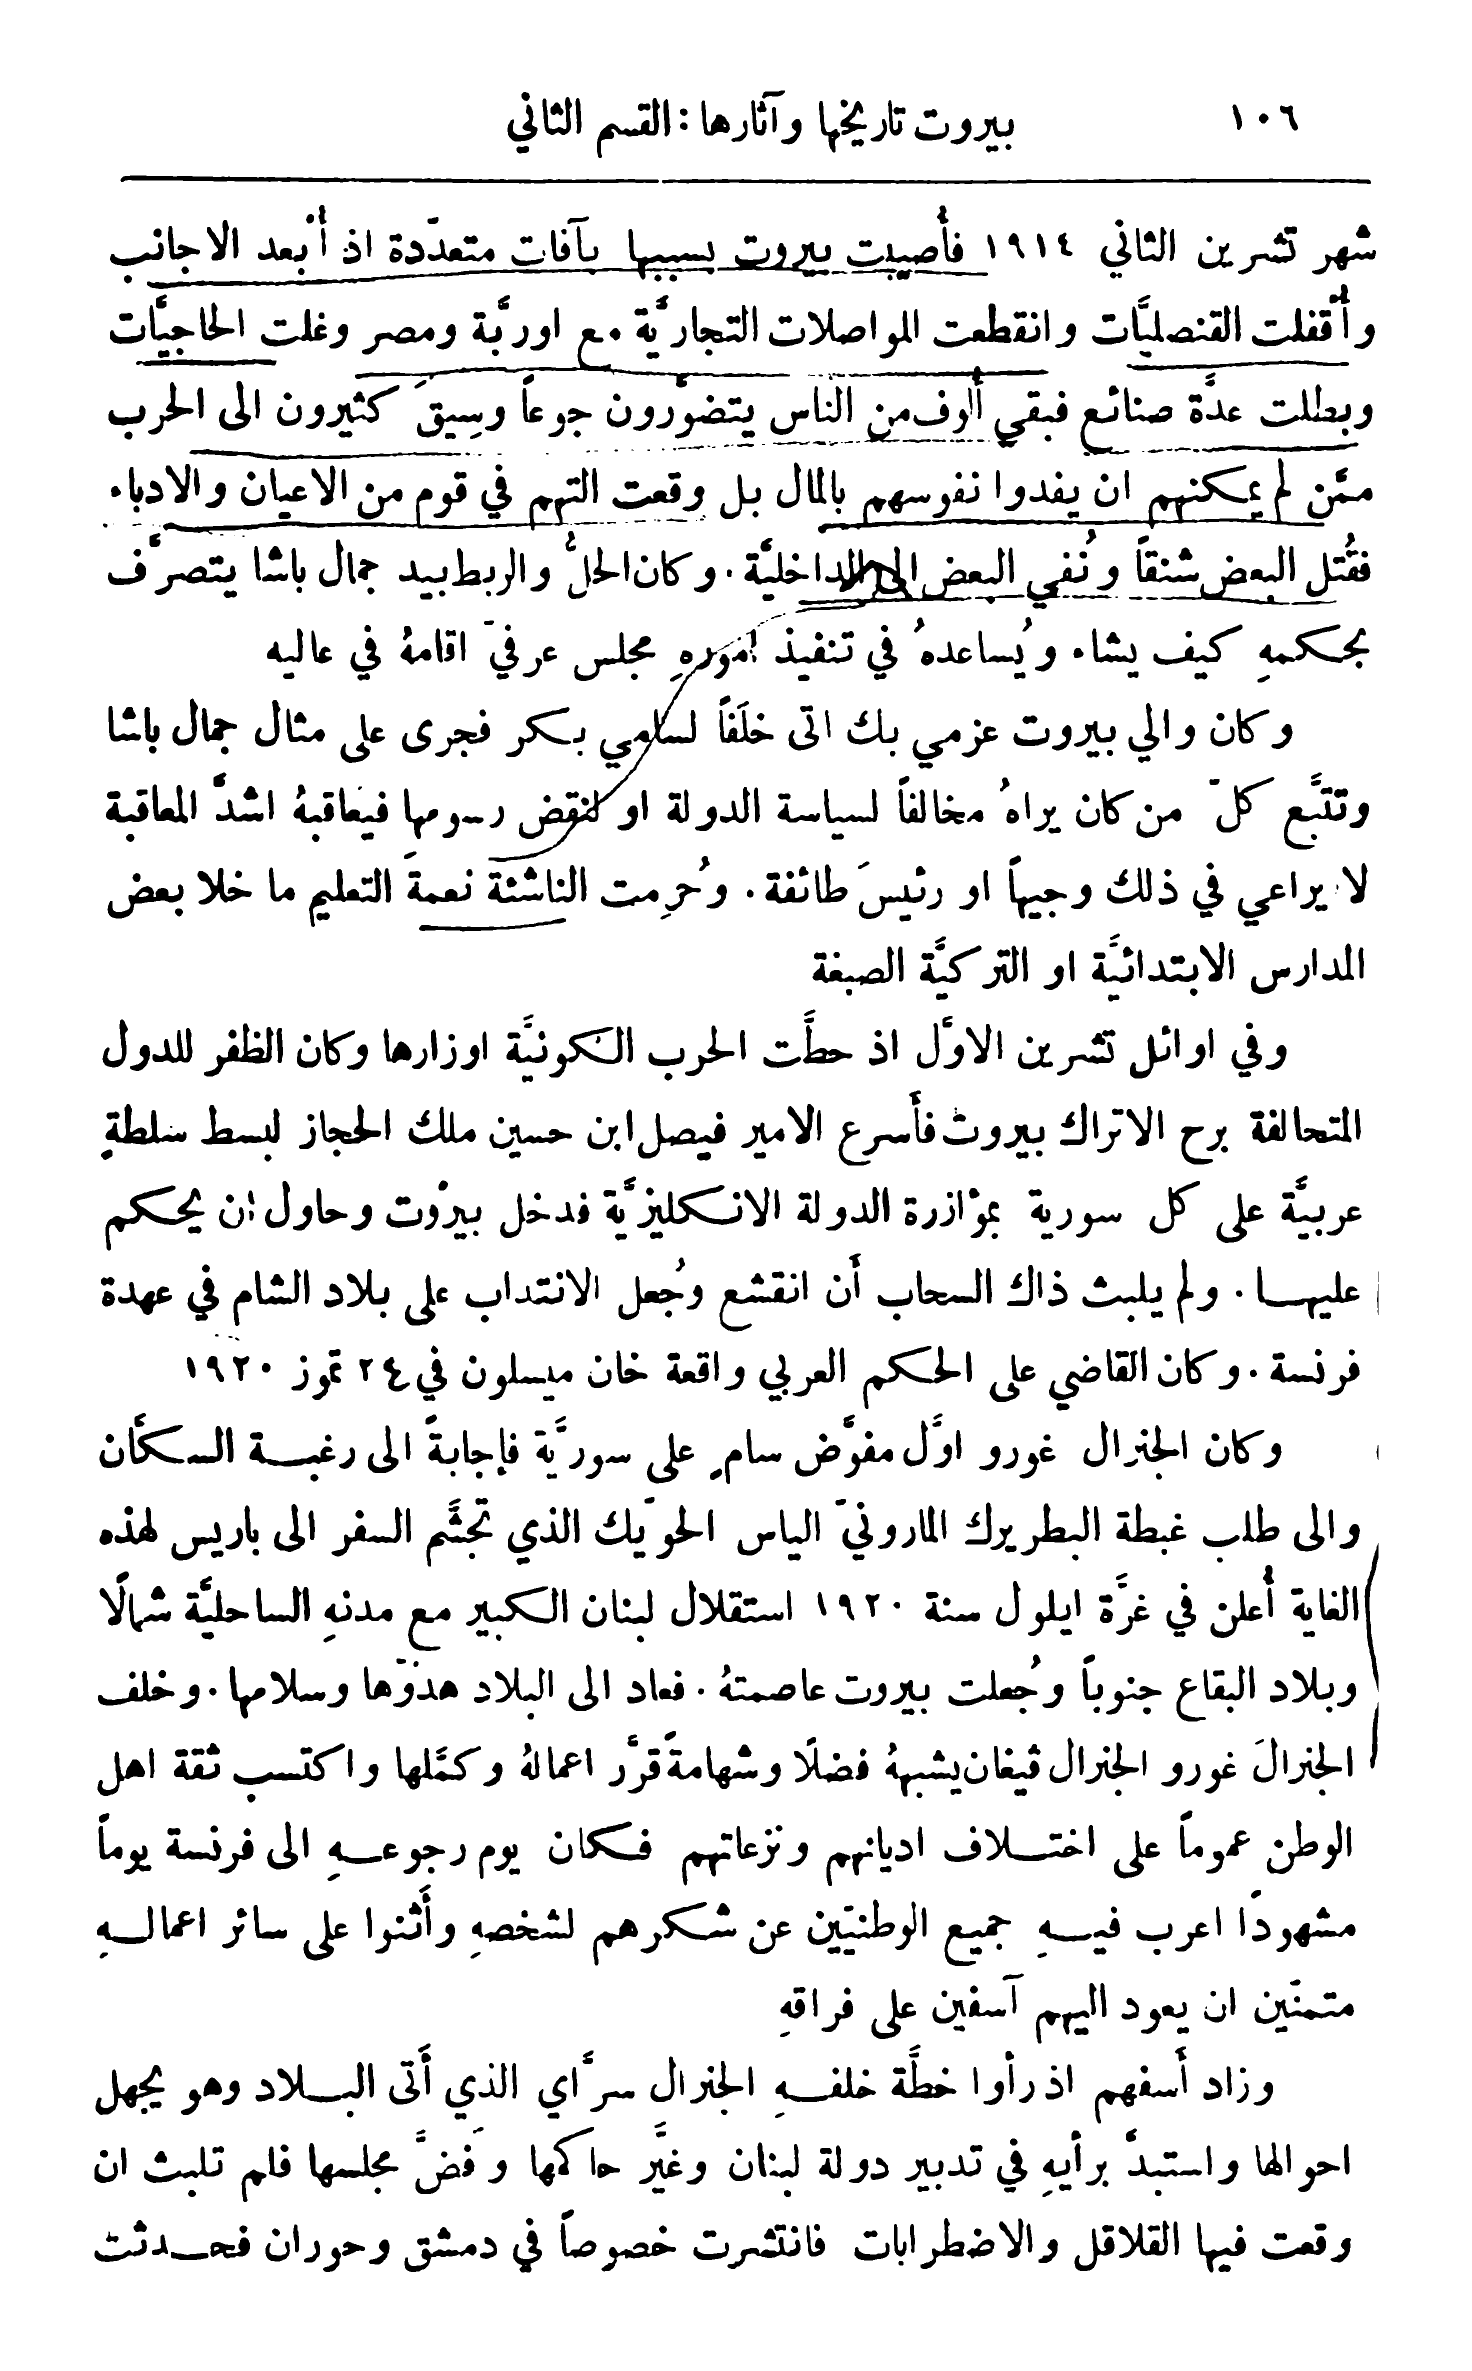 ١٠٦ بيروت تاريخها وآثارها: القسم الثاني
شهر تشرين الثاني ١٩١٤ فأُصيبت بيروت بسببها بآفات متعدّدة اذ أُبعد الاجانب
وأُقفلت القنصليَّات وانقطعت المواصلات التجاريَّة مع اوربَّة ومصر وغلت الحاجيَّات
وبطلت عدَّة صنائع فبقي أُلوف من الناس يتضوَّرون جوعاً وسِيقَ كثيرون الى الحرب
ممَّن لم يمكنهم ان يفدوا نفوسهم بالمال بل وقعت التهم في قوم من الاعيان والادباء
فقُتل البعض شنقاً ونُفي البعض الى الداخليَّة. وكان الحلُّ والربط بيد جمال باشا يتصرَّف
بحكمهِ كيف يشاء ويُساعدهُ في تنفيذ اموره مجلس عرفيّ اقامهُ في عاليه
وكان والي بيروت عزمي بك اتى خلَفاً لسامي بكر فجرى على مثال جمال باشا
وتتبَّع كلّ من كان يراهُ مخالفاً لسياسة الدولة او لنقض رسومها فيعاقبهُ اشدَّ المعاقبة
لا يراعي في ذلك وجيهاً او رئيسَ طائفة. وحُرِمت الناشئة نعمةَ التعليم ما خلا بعض
المدارس الابتدائيَّة او التركيَّة الصبغة
وفي اوائل تشرين الاوَّل اذ حطَّت الحرب الكونيَّة اوزارها وكان الظفر للدول
المتحالفة برح الاتراك بيروت فأسرع الامير فيصل ابن حسين ملك الحجاز لبسط سلطةٍ
عربيَّة على كل سورية بمؤازرة الدولة الانكليزيَّة فدخل بيروت وحاول ان يحكم
عليها. ولم يلبث ذاك السحاب أن انقشع وجُعل الانتداب على بلاد الشام في عهدة
فرنسة. وكان القاضي على الحكم العربي واقعة خان ميسلون في ٢٤ تموز ١٩٢٠
وكان الجنرال غورو اوَّل مفوَّض سامٍ على سوريَّة فإجابةً الى رغبة السكَّان
والى طلب غبطة البطريرك المارونيّ الياس الحويّك الذي تجشَّم السفر الى باريس لهذه
الغاية أُعلن في غرَّة ايلول سنة ١٩٢٠ استقلال لبنان الكبير مع مدنهِ الساحليَّة شمالًا
وبلاد البقاع جنوباً وجُعلت بيروت عاصمتهُ. فعاد الى البلاد هدوّها وسلامها. وخلف
الجنرالَ غورو الجنرال ڤيغان يشبههُ فضلًا وشهامةً قرَّر اعمالهُ وكمَّلها واكتسب ثقة اهل
الوطن عموماً على اختلاف اديانهم ونزعاتهم فكان يوم رجوعهِ الى فرنسة يوماً
مشهودًا اعرب فيهِ جميع الوطنيّين عن شكرهم لشخصهِ وأَثنوا على سائر اعمالهِ
متمنّين ان يعود اليهم آسفين على فراقهِ
وزاد أَسفهم اذ رأوا خطَّة خلفهِ الجنرال سرَّاي الذي أَتى البلاد وهو يجهل
احوالها واستبدَّ برأيهِ في تدبير دولة لبنان وغيَّر حاكمها وفَضَّ مجلسها فلم تلبث ان
وقعت فيها القلاقل والاضطرابات فانتشرت خصوصاً في دمشق وحوران فحدثت